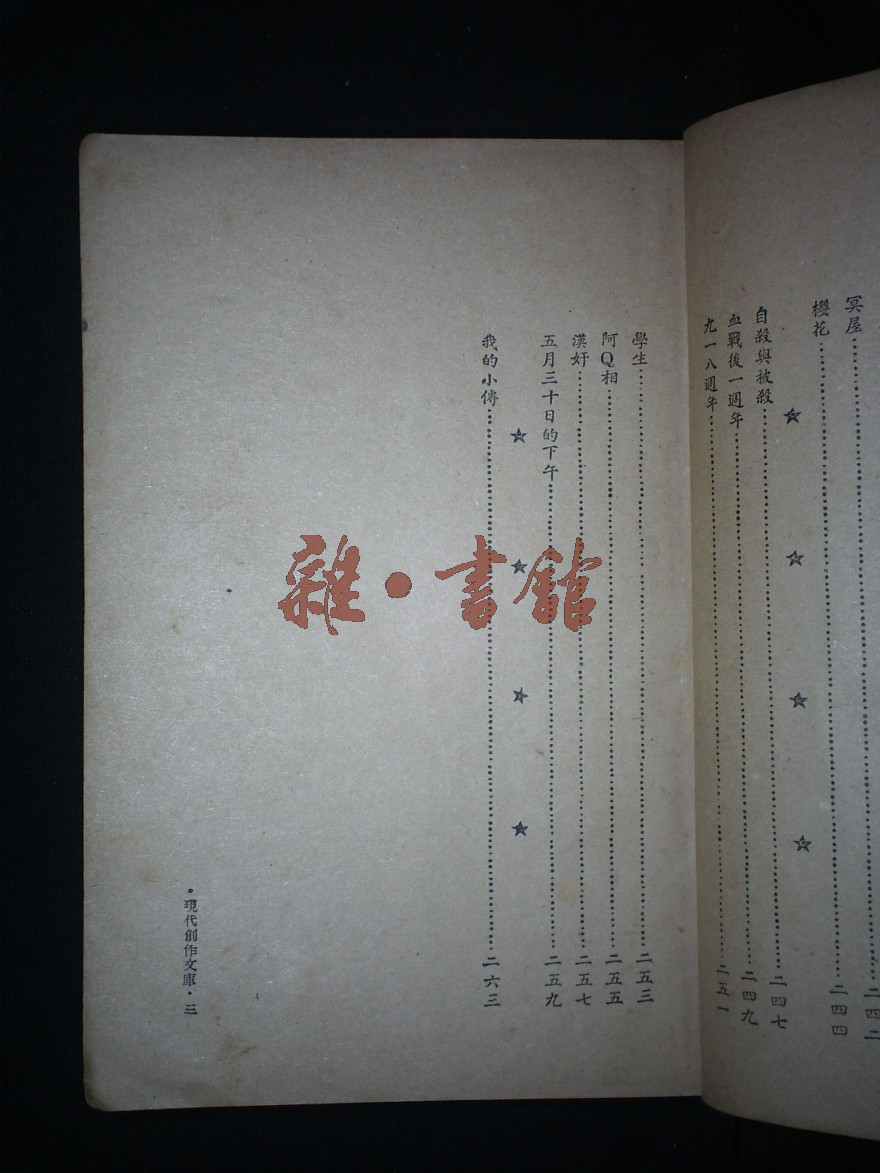 冥屋……二四二
櫻花……二四四
自殺與被殺……二四七
血戰後一週年……二四九
九一八週年……二五一
學生……二五三
阿Q相……二五五
漢奸……二五七
五月三十日的下午……二五九
我的小傳……二六三
•現代創作文庫•三
雜•書館